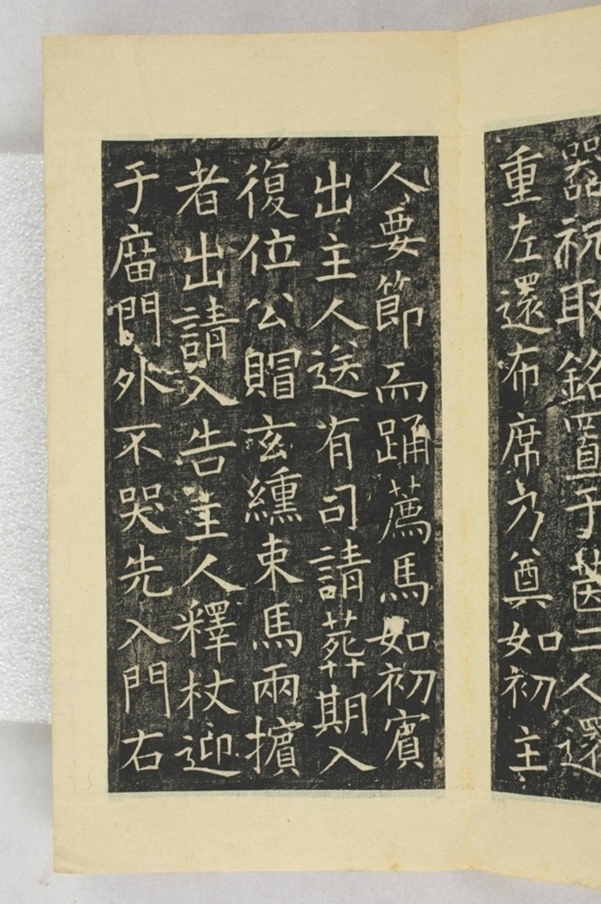 器祝取銘置于茵二人還
重左還布席乃奠如初主
人要節而踊薦馬如初賓
出主人送有司請葬期入
復位公賵玄纁束馬兩擯
者出請入告主人釋杖迎
于庿門外不哭先入門右